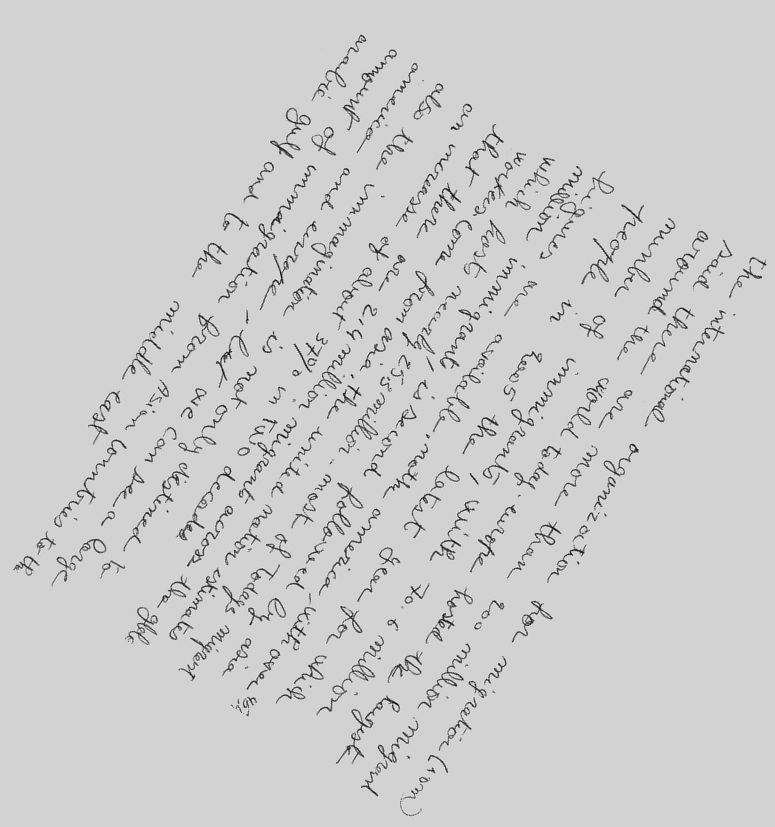 the international organization for migration (iom)
said there are more than 200 million migrant
around the world today. europe hosted the largest
number of immigrants, with 70.6 million
people in 2005 the latest year for which
figures are available. north america with over 45,1
million immigrants is second followed by asia
which host nearly 25.3 million. most of todays migrant
workers come from asia. the united nation estimates
that there are 214 million migrants across the globe
an increase of about 37% in two decades
also the immagination is not only destined to
america and europe, but we can see a large
amount of immagration from Asian countries to the
arabic gulf and to the middle east